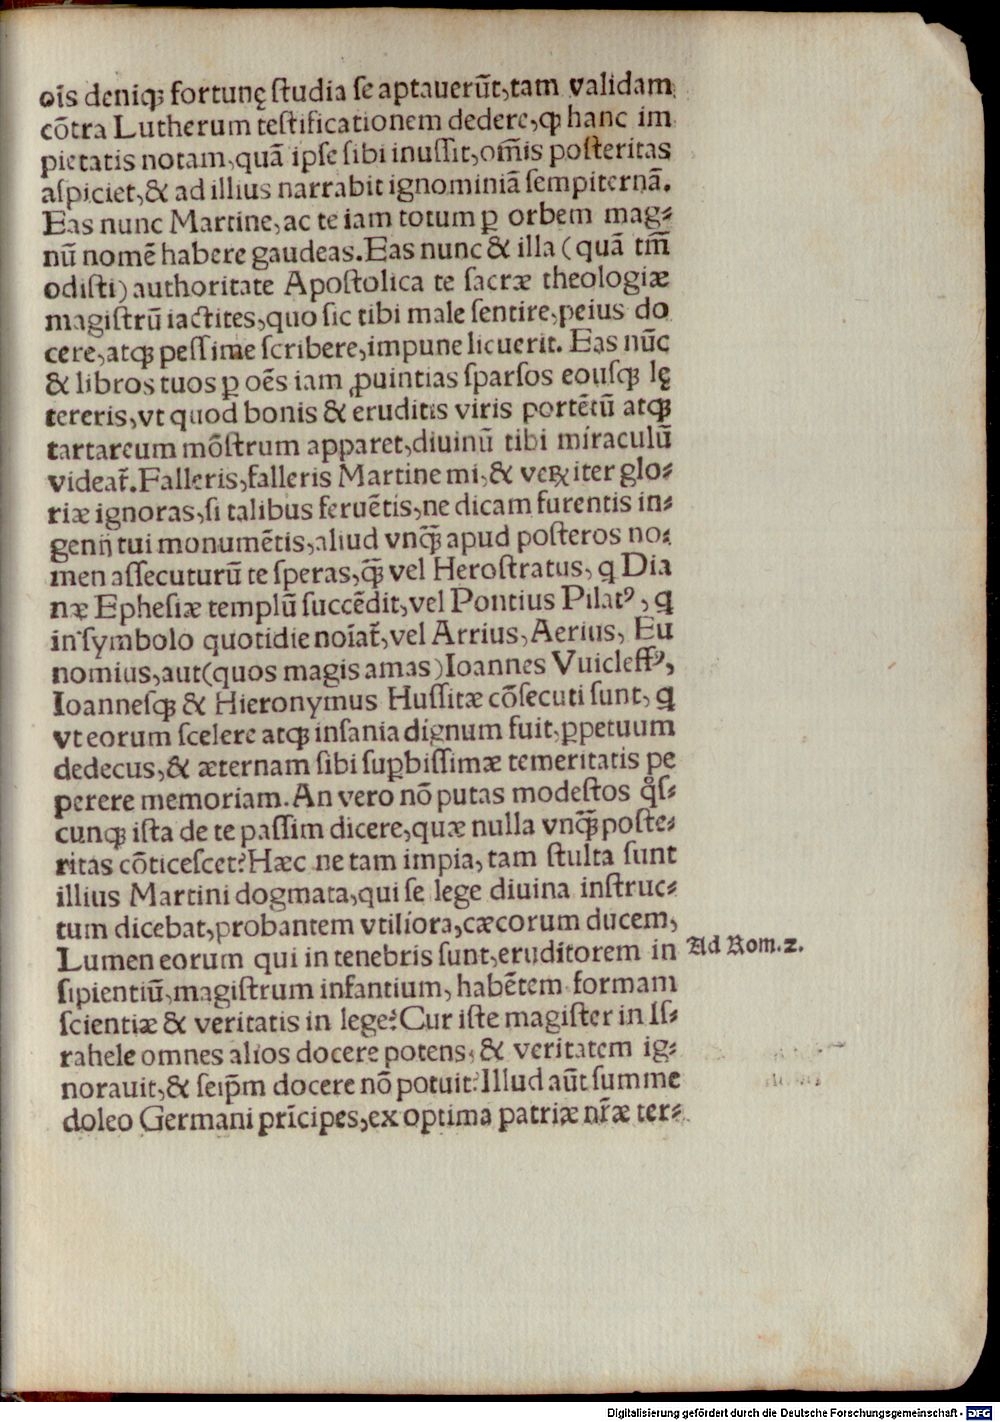 oīs deniqꝫ fortunę ſtudia ſe aptauerūt, tam validam
cōtra Lutherum teſtificationem dedere, ꝙ hanc im
pietatis notam, quā ipſe ſibi inuſſit, om̄is poſteritas
aſpiciet, & ad illius narrabit ignominiā ſempiternā.
Eas nunc Martine, ac te iam totum ꝑ orbem mag⸗
nū nomē habere gaudeas. Eas nunc & illa (quā tm̄
odiſti) authoritate Apoſtolica te ſacræ theologiæ
magiſtrū iactites, quo ſic tibi male ſentire, peius do
cere, atqꝫ peſſime ſcribere, impune licuerit. Eas nūc
& libros tuos ꝑ oēs iam ꝓuintias ſparſos eouſqꝫ lę
tereris, vt quod bonis & eruditis viris portētū atqꝫ
tartareum mōſtrum apparet, diuinū tibi miraculū
videat̄. Falleris, falleris Martine mi, & veꝝ iter glo⸗
riæ ignoras, ſi talibus feruētis, ne dicam furentis in⸗
genij tui monumētis, aliud vnqꝫ̄ apud poſteros no⸗
men aſſecuturū te ſperas, qꝫ̄ vel Heroſtratus, q Dia
næ Epheſiæ templū ſuccēdit, vel Pontius Pilatꝰ, q
in ſymbolo quotidie noīat̄, vel Arrius, Aerius, Eu
nomius, aut (quos magis amas) Ioannes Vuicleffꝰ,
Ioanneſqꝫ & Hieronymus Huſſitæ cōſecuti ſunt, q
vt eorum ſcelere atqꝫ inſania dignum fuit, ꝑpetuum
dedecus, & æternam ſibi ſuꝑbiſſimæ temeritatis pe
perere memoriam. An vero nō putas modeſtos qͦſ⸗
cunqꝫ iſta de te paſſim dicere, quæ nulla vnqꝫ̄ poſte⸗
ritas cōticeſcet? Hæc ne tam impia, tam ſtulta ſunt
illius Martini dogmata, qui ſe lege diuina inſtruc⸗
tum dicebat, probantem vtiliora, cæcorum ducem,
Lumen eorum qui in tenebris ſunt, eruditorem in
ſipientiū, magiſtrum infantium, habētem formam
ſcientiæ & veritatis in lege? Cur iſte magiſter in Iſ⸗
rahele omnes alios docere potens, & veritatem ig⸗
norauit, & ſeip̄m docere nō potuit? Illud aūt ſumme
doleo Germani prīcipes, ex optima patriæ nr̄æ ter⸗
Ad Rom. 2.
Digitalisierung gefördert durch die Deutsche Forschungsgemeinschaft - DFG